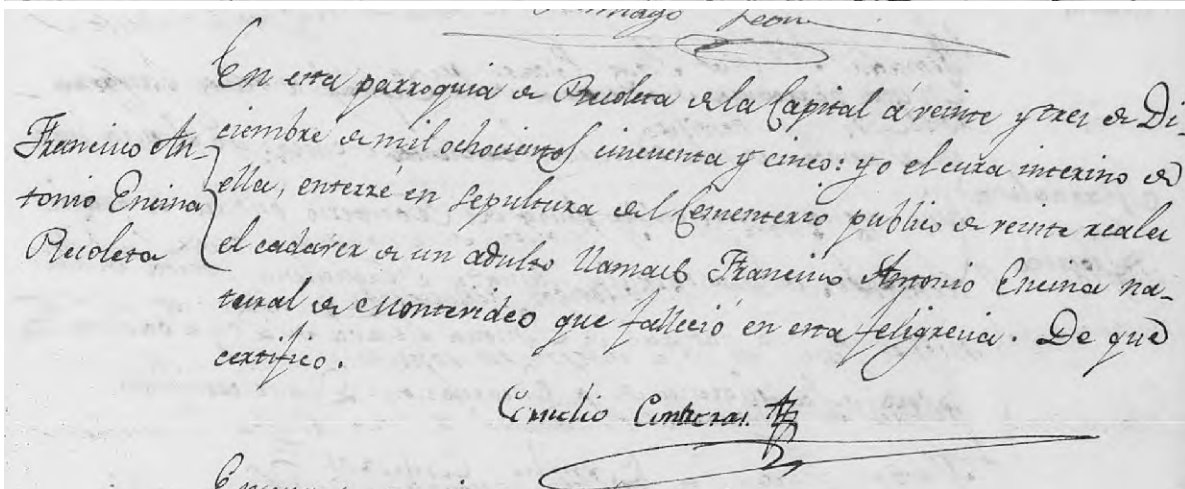 Santiago Leon
En esta parroquia de Recoleta de la Capital á veinte y tres de Di-
Francisco An-
tonio Encina
Recoleta
ciembre de mil ochocientos cincuenta y cinco: yo el cura interino de
ella, enterré en sepultura del Cementerio publico de veinte reales
el cadaver de un adulto llamado Francisco Antonio Encina na-
tural de Montevideo que falleció en esta feligrecia. De que
certifico.
Cornelio Contreras